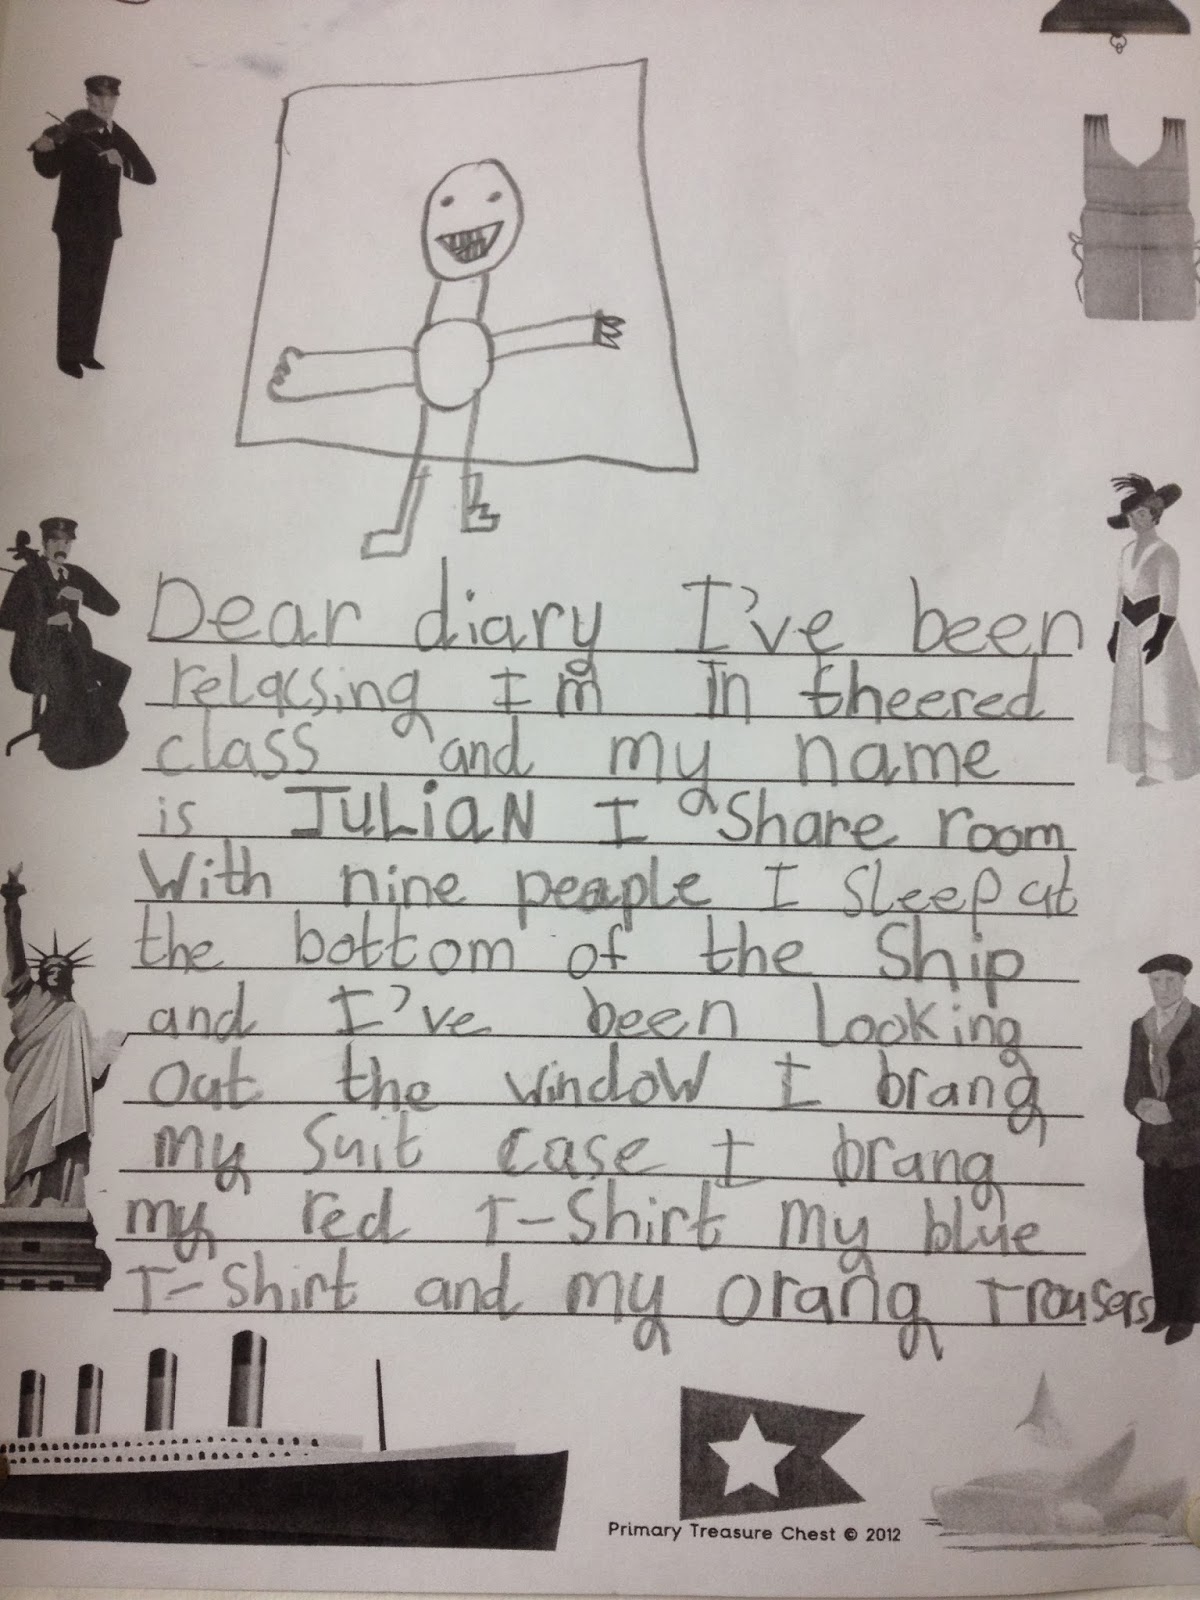 Dear diary I've been
relacsing I m in theered
class and my name
is JULiAN I share room
With nine peaple I sleep at
the bottom of the Ship
and I've been Looking
Out the window I brang
my suit case I brang
my red T-Shirt my blue
T-Shirt and my orang Trousers
Primary Treasure Chest © 2012